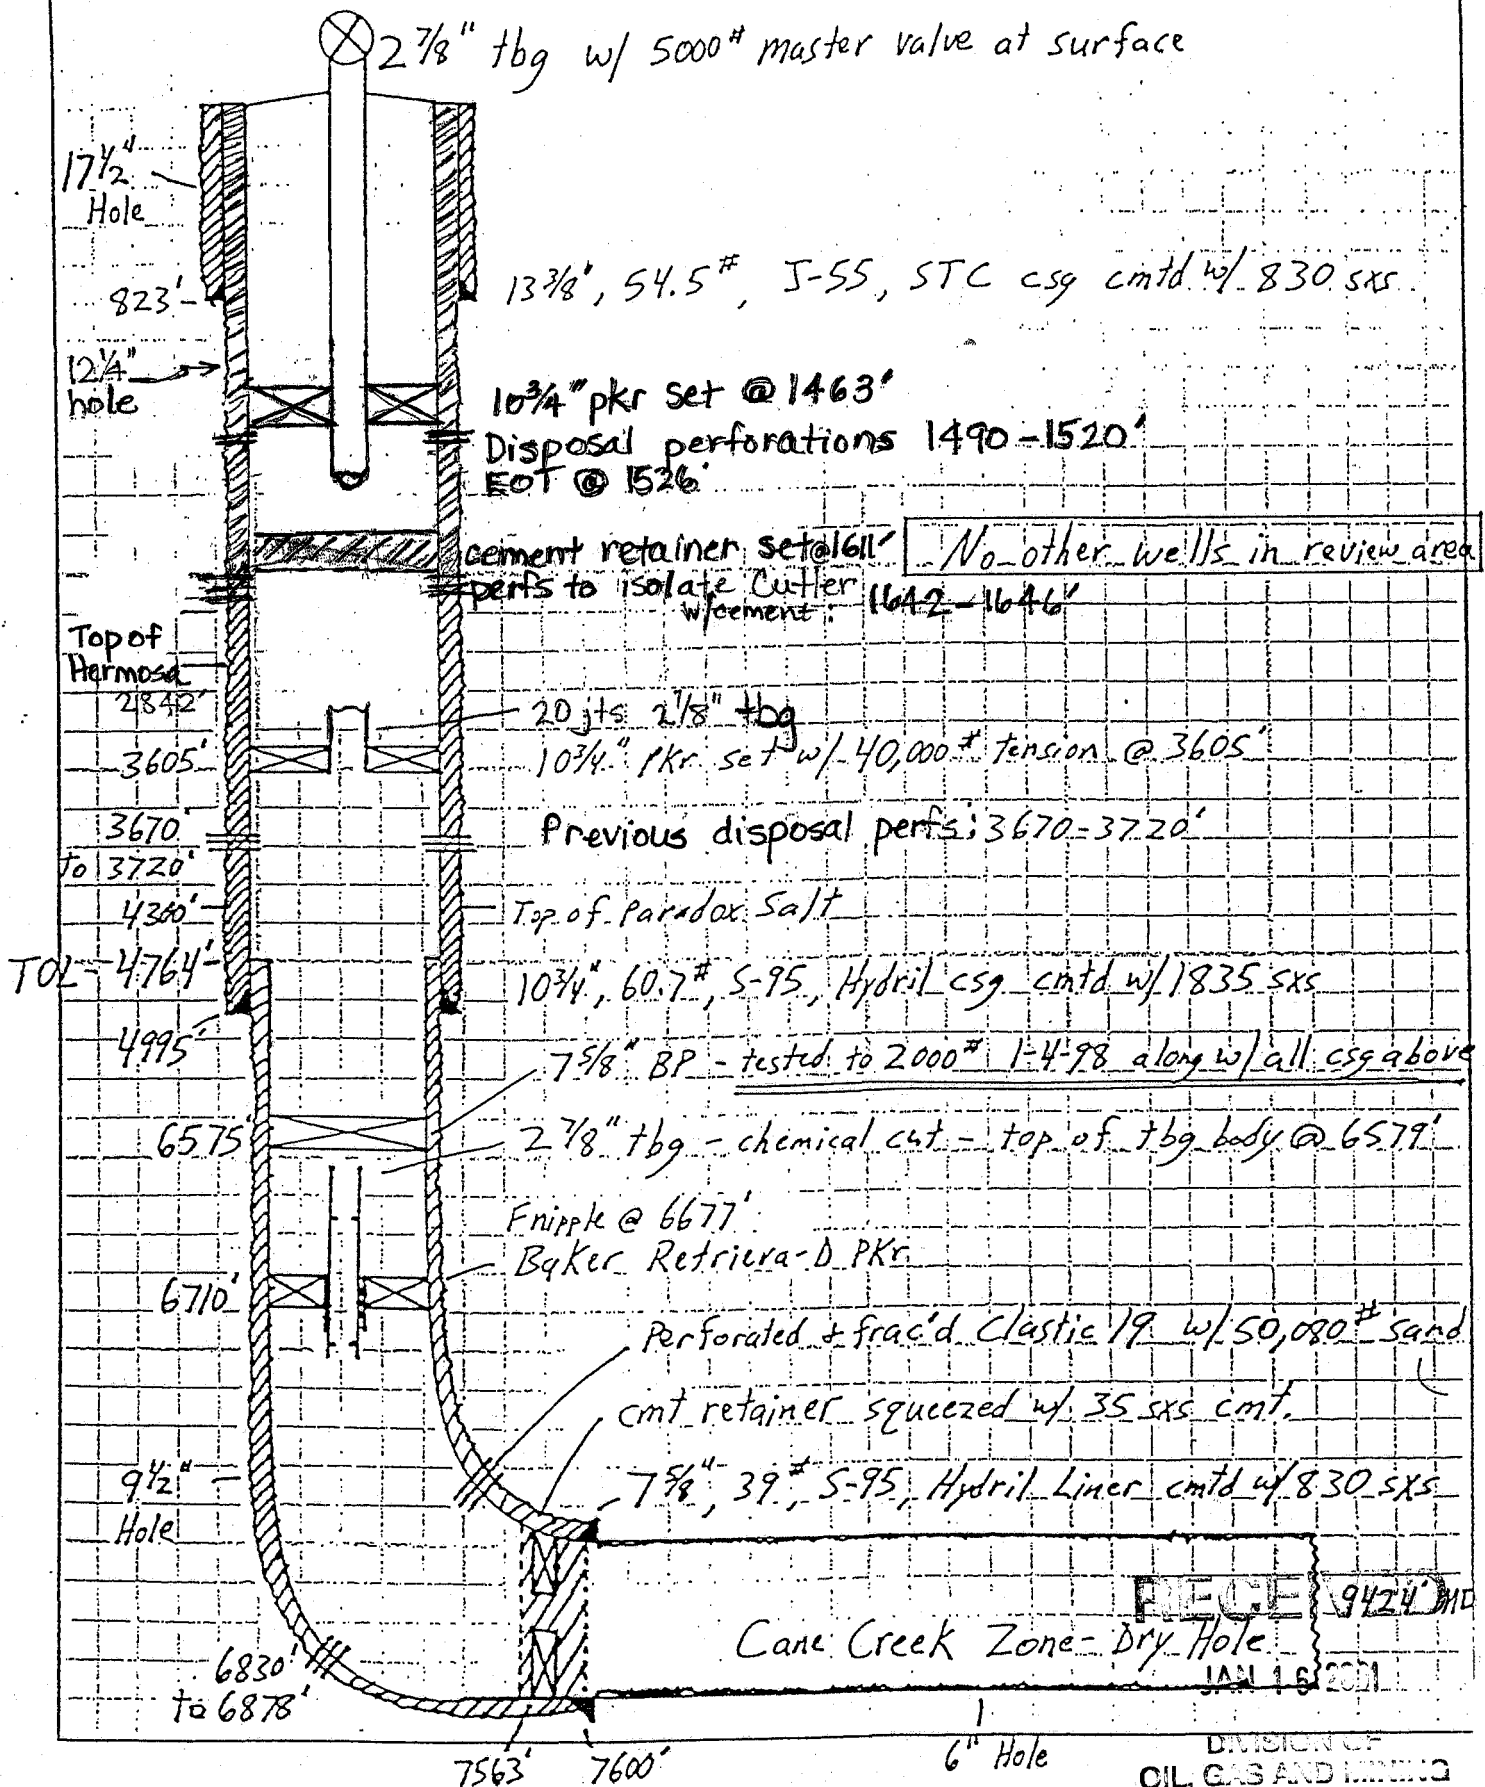 2 7/8" tbg w/ 5000# master valve at surface
17 1/2"
Hole
823'
13 3/8", 54.5#, J-55, STC csg cmtd w/ 830 sxs
12 1/4"
hole
10 3/4" pkr set @ 1463'
Disposal perforations 1490-1520'
EOT @ 1526'
cement retainer set @ 1611'
No other wells in review area
perfs to isolate Cutler
w/cement: 1642-1646'
Top of
Hermosa
2842'
20 jts 2 7/8" tbg
3605'
10 3/4" pkr set w/ 40,000# tension @ 3605'
3670'
to 3720'
Previous disposal perfs: 3670-3720'
4360'
Top of Paradox Salt
TOL - 4764'
10 3/4", 60.7#, S-95, Hydril csg cmtd w/ 1835 sxs
4995'
7 5/8" BP - tested to 2000# 1-4-98 along w/ all csg above
6575'
2 7/8" tbg - chemical cut - top of tbg body @ 6579'
F nipple @ 6677'
Baker Retrieva-D PKr
6710'
Perforated & frac'd Clastic 19 w/ 50,080# sand
cmt retainer squeezed w/ 35 sxs cmt.
9 1/2"
Hole
7 5/8", 39#, S-95, Hydril Liner cmtd w/ 830 sxs
RECEIVED
9424' MD
Cane Creek Zone - Dry Hole
JAN 16 2001
6830'
to 6878'
7563'
7600'
6" Hole
DIVISION OF
OIL, GAS AND MINING